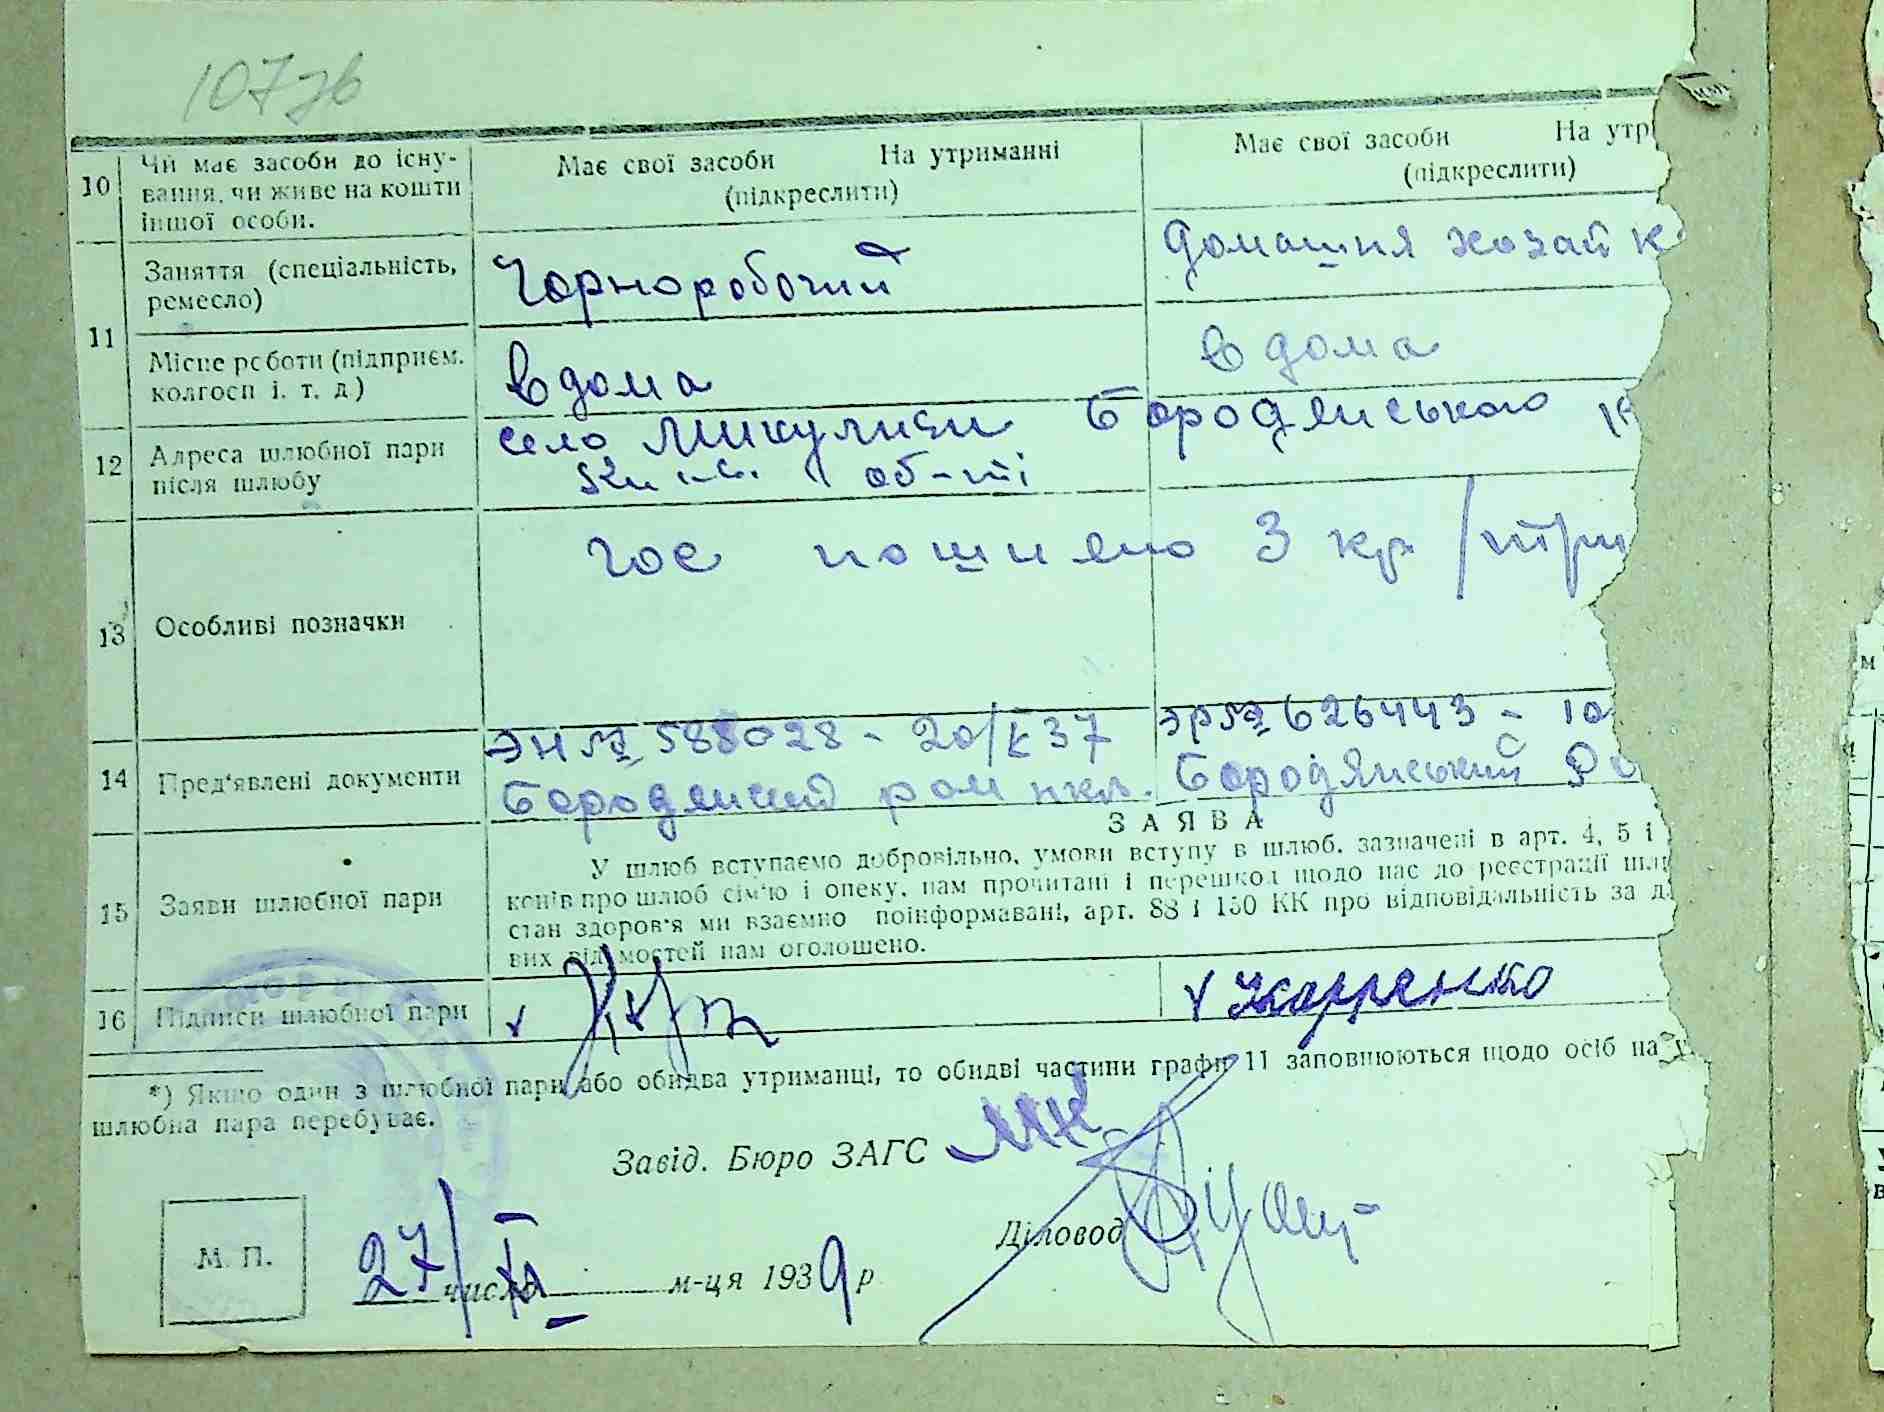 107зв
10 Чи має засоби до існу- Має свої засоби На утриманні Має свої засоби На утр
вання, чи живе на кошти (підкреслити) (підкреслити)
іншої особи.
11 Заняття (спеціальність, Чорноробочий домашня хозайк
ремесло)
Місце роботи (підприєм. вдома вдома
колгосп і. т. д.)
12 Адреса шлюбної пари село Микуличи Бородянського
після шлюбу Київс. об-ті
13 Особливі позначки гос пошлено 3 кр /три
14 Пред'явлені документи ЭН № 588028 - 20/ 37 ЭР № 626443 - 10
Бородянский Бородянський
З А Я В А
15 Заяви шлюбної пари У шлюб вступаємо добровільно, умови вступу в шлюб, зазначені в арт. 4, 5 і
конів про шлюб сім'ю і опеку, нам прочитані і перешкод щодо нас до реєстрації шлю
стан здоров'я ми взаємно поінформавані, арт. 88 і 150 КК про відповідальність за д
вих відомостей нам оголошено.
16 Підписи шлюбної пари
*) Якщо один з шлюбної пари або обидва утриманці, то обидві частини графи 11 заповнюються щодо осіб на у
шлюбна пара перебуває.
Завід. Бюро ЗАГС
Діловод
М. П.
27/XI число м-ця 1939 р